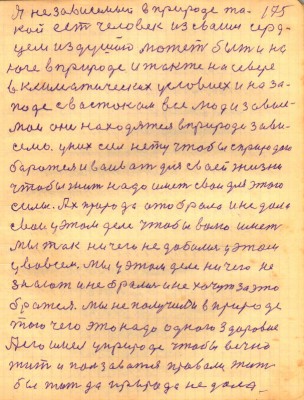 175
Я независимый в природе та-
кой ест человек из своим серд-
цем из душой может быт и на
юге в природе и также на севере
в климатических условиех и на за-
паде с востоком все люди завис-
мои они находятся в природе зави-
симо. у них сил нету чтобы с природой
баротся и ваиват для своей жизни
чтобы жит надо имет свои для этого
силы. Их природа отобрала и не дала
свои у этом деле чтобы было имет
мы так ничего не добилис у этом
у вовсем. мы у этом деле ничего не
знали и не брались и не хочут за это
братся. мы не получили в природе
того чего это надо одного Здоровие
Его имел у природе чтобы вечно
жит и ползаватся правом, жит
бы жит да природа не дала